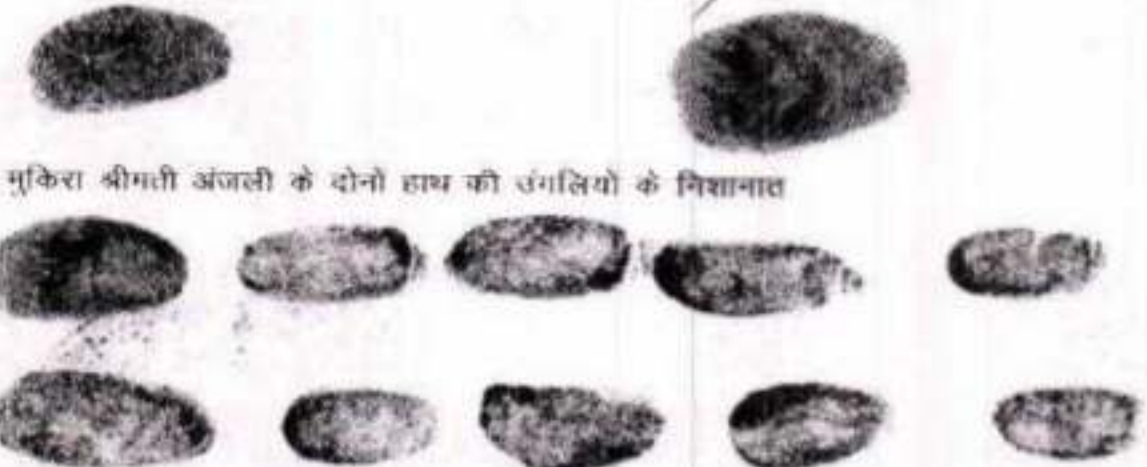 मुकिरा श्रीमती अंजली के दोनो हाथ की उंगलियो के निशानात